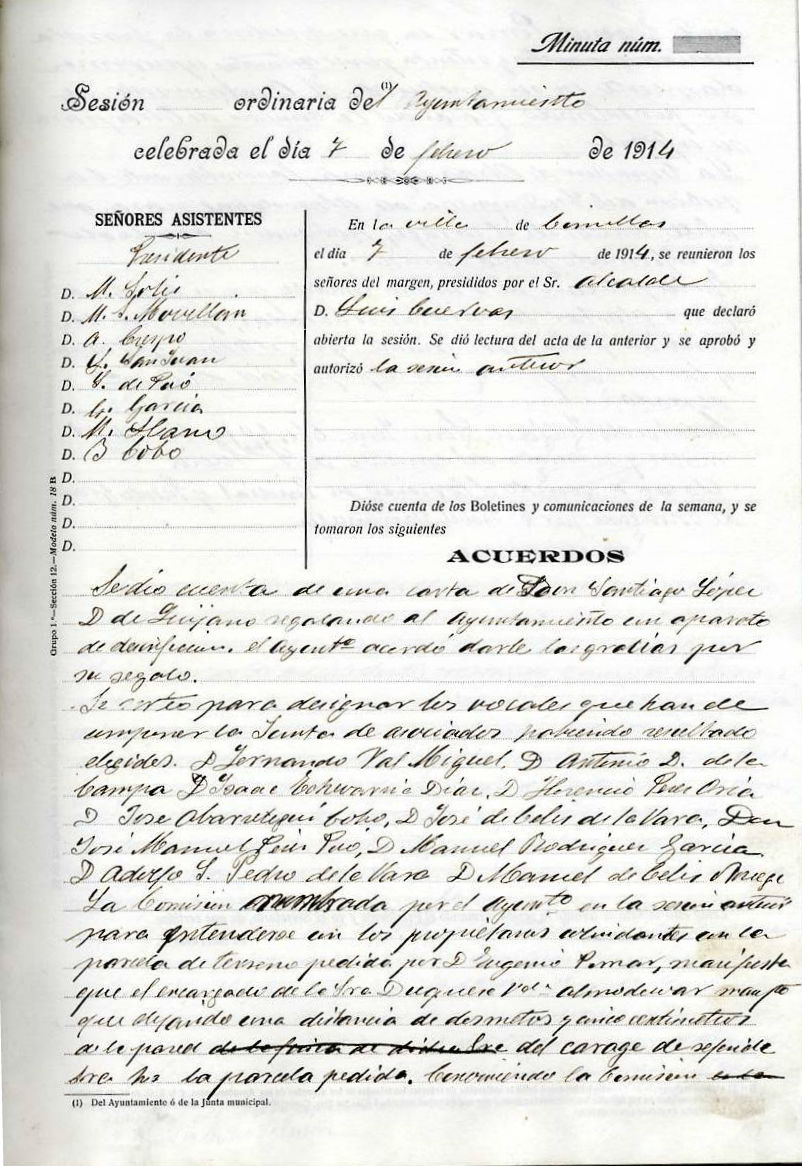 Minuta núm.
Sesión ordinaria del (1) Ayuntamiento
celebrada el día 7 de febrero de 1914
SEÑORES ASISTENTES
Presidente
D. M. Solis
D. M. S. Movellan
D. A. Crespo
D. San Juan
D. S. de Poó
D. G. García
D. M. Llano
D. B Cobo
D.
D.
D.
D.
En la villa de Comillas
el dia 7 de febrero de 1914, se reunieron los
señores del margen, presididos por el Sr. alcalde
D. Luis Cuevas que declaró
abierta la sesión. Se dió lectura del acta de la anterior y se aprobó y
autorizó la sesion anterior
Dióse cuenta de los Boletines y comunicaciones de la semana, y se
tomaron los siguientes
ACUERDOS
Se dio cuenta de una carta de Don Santiago López
D de Quijano regalando al Ayuntamiento un aparato
de desinfeccion. el Ayentº acordo darle las gracias por
su regalo.
Se sorteo para designar los vocales que han de
componer la Junta de asociados habiendo resultado
elegidos. D Fernando Val Miguel. D Antonio D. de la
Campa D Isaac Echevarria Diaz, D Florencio Peres Oria
D Jose Abarategui Cobo, D José de Celis de la Vara, Don
José Manuel Poó, D Manuel Rodriguez García
D Adolfo S. Pedro de la Vara D Manuel de Celis
La Comision nombrada por el Ayento en la sesion anterior
para entenderse con los propietarios colindantes con la
parcela de terreno pedida por D Eugenio Pomar, manifiesta
que el encargado de la Sra Duquesa Vda almodovar
que dejando una distancia de dos metros y cinco centimetros
de la pared de la finca de dicha Sra del garage de referida
Sra la parcela pedida. Conociendo la Comision
(1) Del Ayuntamiento ó de la Junta municipal.
Grupo 1.º—Sección 12.—Modelo núm. 18 B